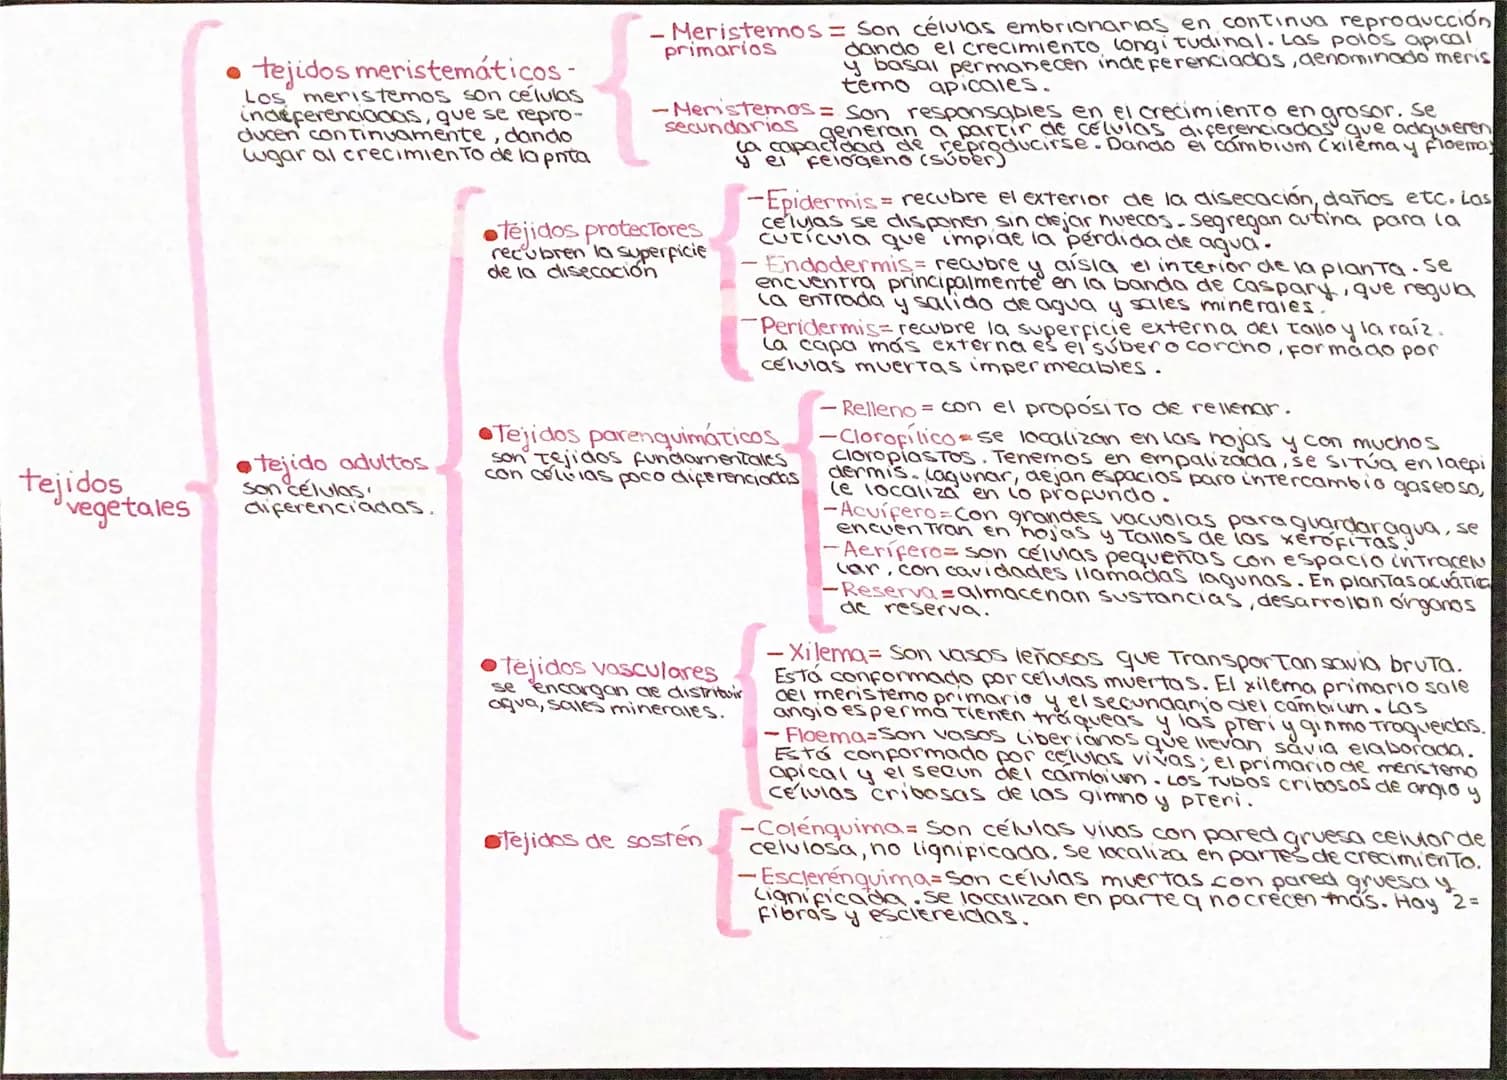 tejidos
vegetales
• tejidos meristemáticos -
Los meristemos son células
indeferenciadas, que se repro-
ducen continuamente, dando
lugar al crecimiento de la pnta
- Meristemos = Son células embrionarias en continua reproducción,
primarios dando el crecimiento longitudinal. Las polos apical
y basal permanecen indeferenciados, denominado meris
temo apicales.
- Meristemos = Son responsables en el crecimiento en grosor. Se
secundarios generan a partir de células diferenciadas que adquieren
la capacidad de reproducirse. Dando el cámbium (xilema y floema)
y el felógeno (súber)
• tejido adultos
son células
diferenciadas.
• tejidos protectores
recubren la superficie
de la disecación
- Epidermis = recubre el exterior de la disecación, daños etc. Las
células se disponen sin dejar huecos. Segregan cutina para la
cutícula que impide la pérdida de agua.
- Endodermis = recubre y aísla el interior de la planta. Se
encuentra principalmente en la banda de Caspary, que regula
la entrada y salida de agua y sales minerales.
- Peridermis = recubre la superficie externa del tallo y la raíz.
La capa más externa es el súber o corcho, formado por
células muertas impermeables.
• Tejidos parenquimáticos
son tejidos fundamentales
con células poco diferenciadas
- Relleno = con el proposito de rellenar.
- Clorofílico = se localizan en las hojas y con muchos
cloroplastos. Tenemos en empalizada, se sitúa en la epi
dermis. Lagunar, dejan espacios para intercambio gaseoso,
le localiza en lo profundo.
- Acuífero = Con grandes vacuolas para guardar agua, se
encuentran en hojas y tallos de las xerófitas.
- Aerífero = son células pequeñas con espacio intracelu
lar, con cavidades llamadas lagunas. En plantas acuática
- Reserva = almacenan sustancias, desarrollan órganos
de reserva.
• Tejidos vasculares
se encargan de distribuir
agua, sales minerales.
- Xilema = Son vasos leñosos que transportan savia bruta.
Está conformado por células muertas. El xilema primario sale
del meristemo primario y el secundario del cámbium. Las
angioesperma tienen tráqueas y las pteri y ginmo traqueidas.
- Floema = Son vasos liberianos que llevan savia elaborada.
Está conformado por células vivas; el primario de meristemo
apical y el secun del cámbium. Los tubos cribosos de angio y
células cribosas de las gimno y pteri.
• Tejidos de sostén
- Colénquima = Son células vivas con pared gruesa celular de
celulosa, no lignificada. Se localiza en partes de crecimiento.
- Esclerénquima = Son células muertas con pared gruesa y
lignificada. Se localizan en parte q no crecen más. Hay 2 =
fibras y esclereidas.